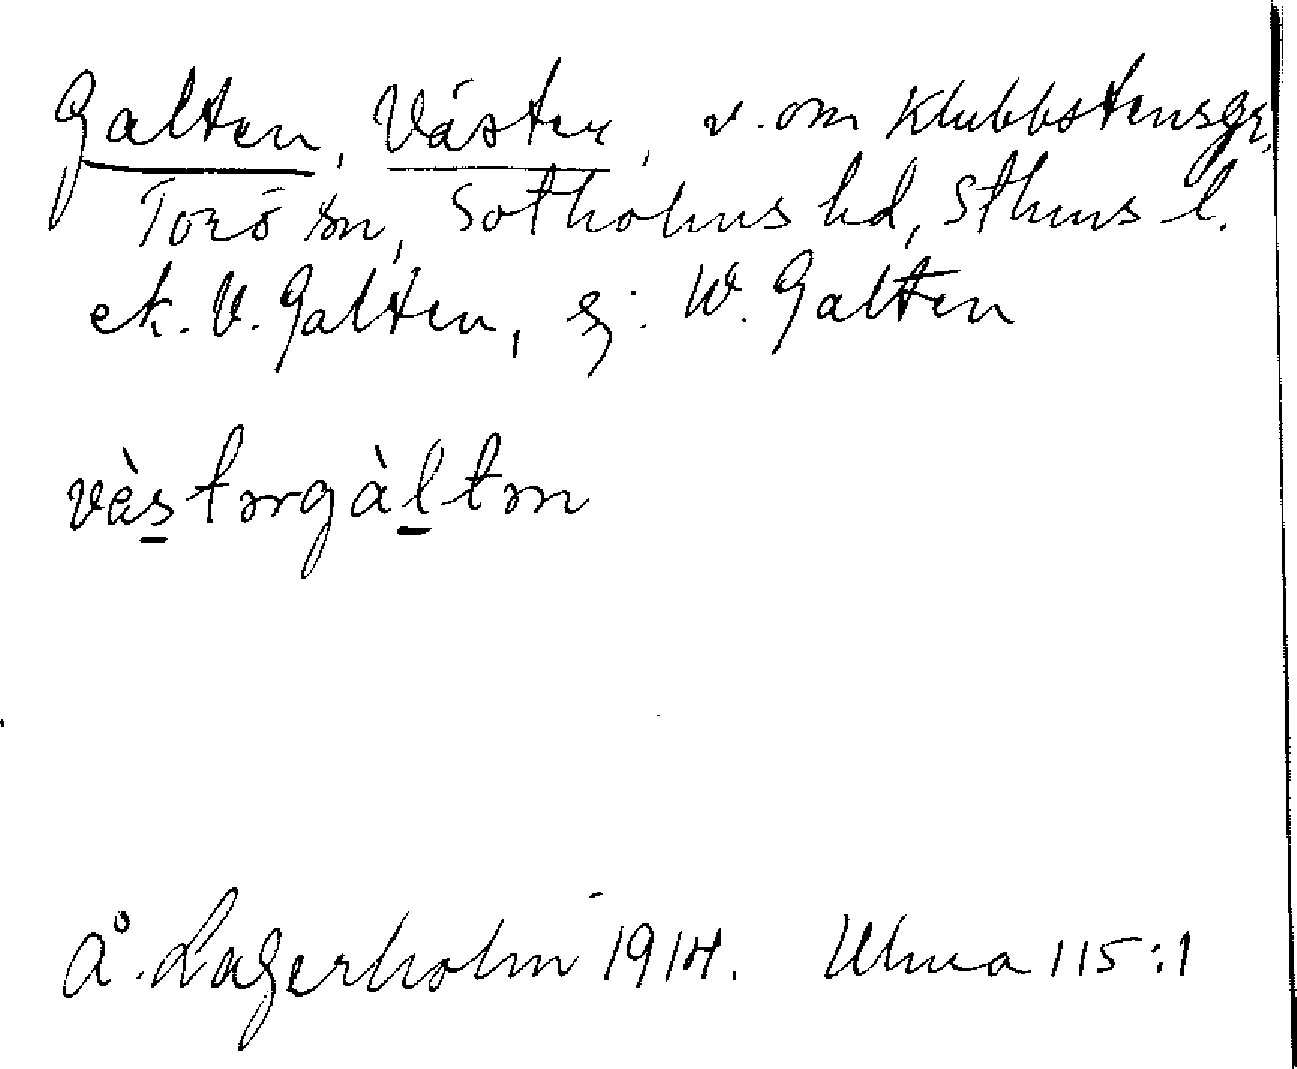 Galten, Väster, v. om Klubbstensgr,
Torö sn, Sotholms hd, Sthms l.
ek. V. Galten, gj: W. Galten
vàstərgàltən
Å. Lagerholm 1914. Ulma 115:1